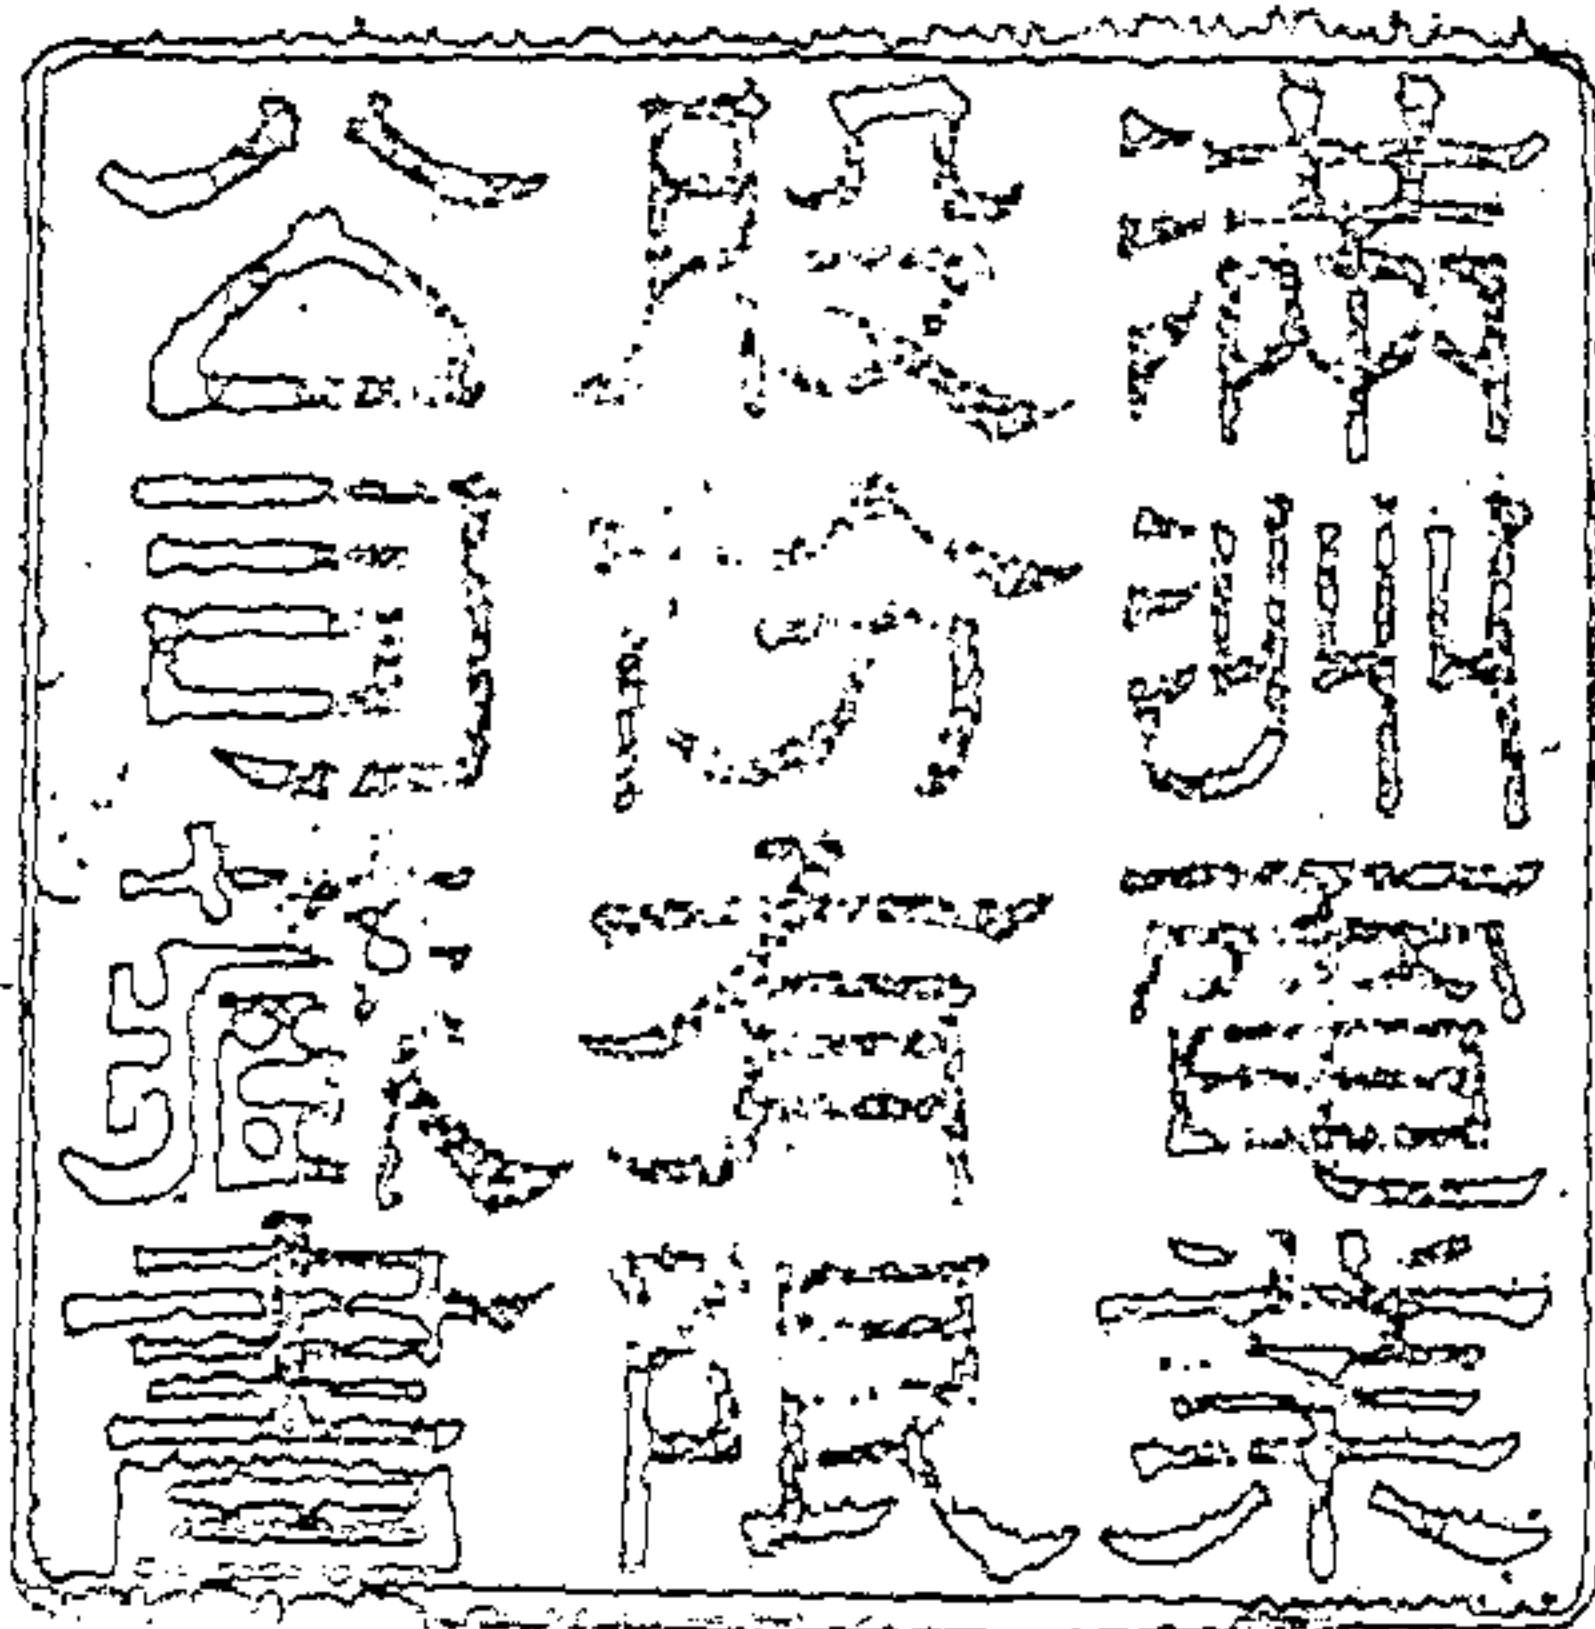 滿洲電業
股份有限
公司藏書